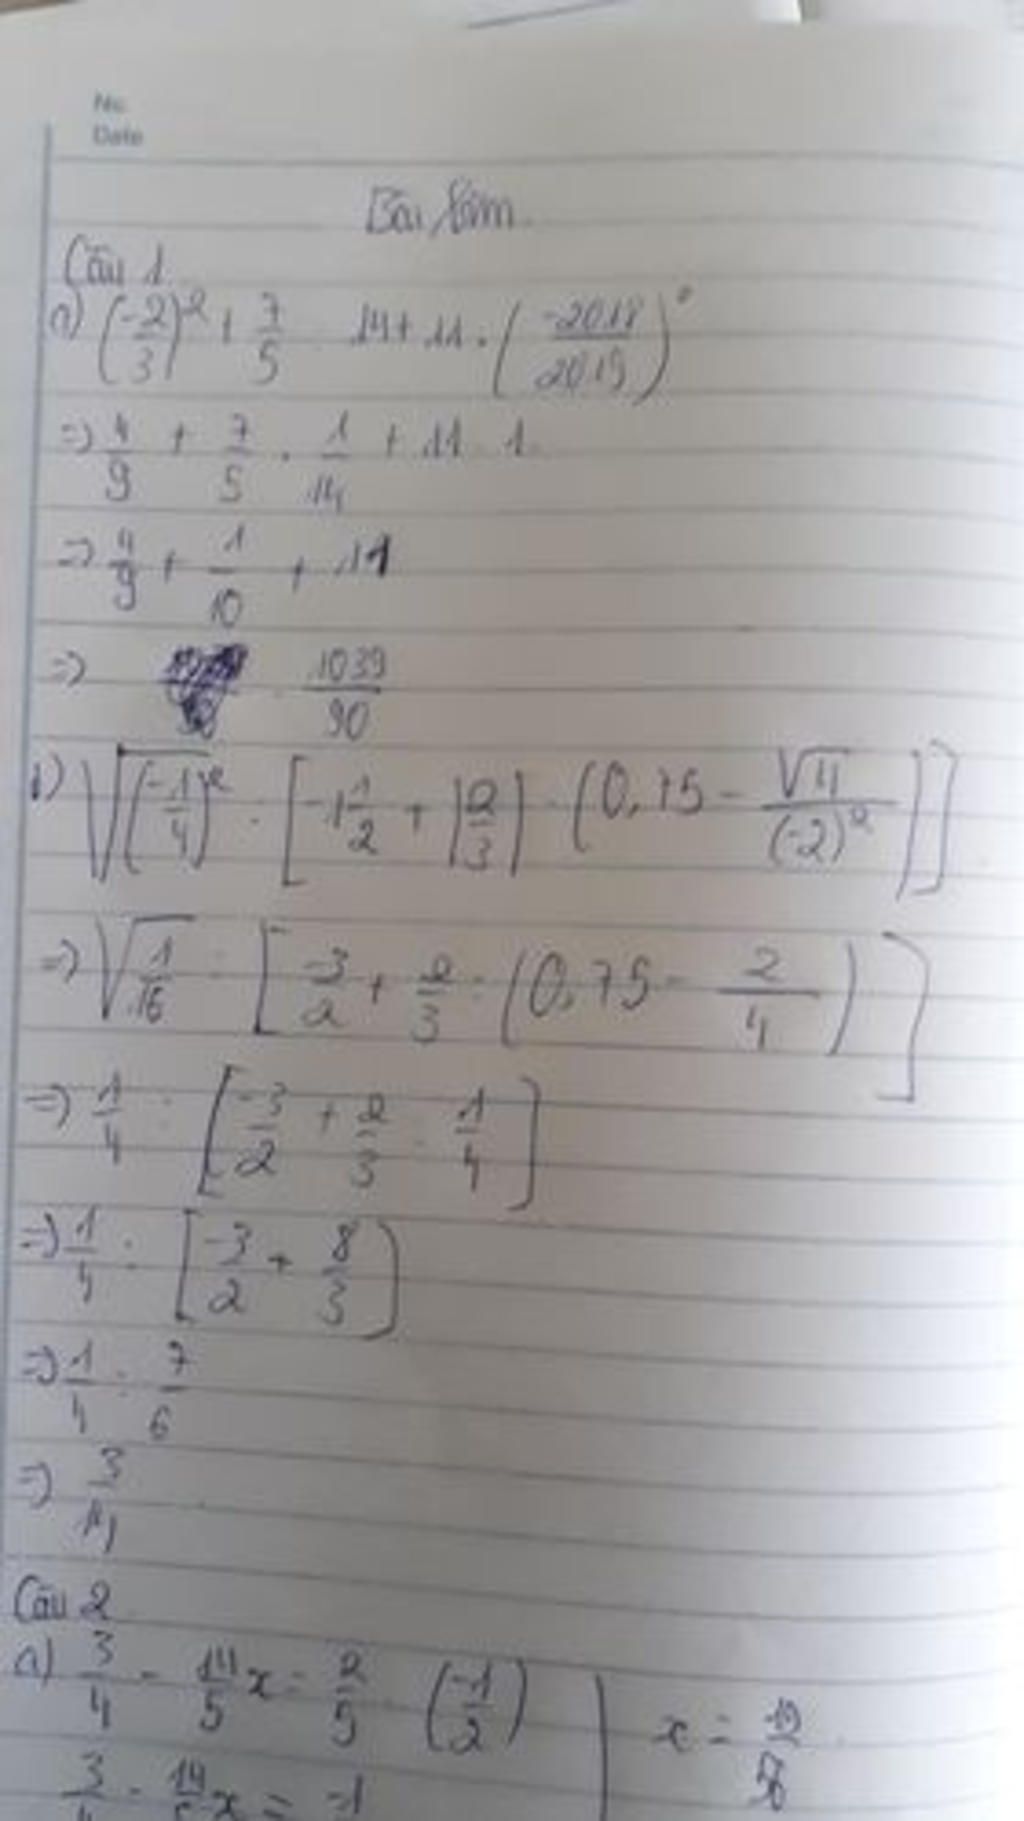 No.
Date
Bài làm
Câu 1
a) (-2/3)² + 7/5 : 14 + 11 . (-2018/2019)⁰
=> 4/9 + 7/5 . 1/14 + 11 . 1
=> 4/9 + 1/10 + 11
=> 1039/90
b) √(-1/4)² : [-1 1/2 + |2/3| : (0,75 - √4/(-2)²)]
=> √1/16 : [-3/2 + 2/3 : (0,75 - 2/4)]
=> 1/4 : [-3/2 + 2/3 : 1/4]
=> 1/4 : [-3/2 + 8/3]
=> 1/4 : 7/6
=> 3/14
Câu 2
a) 3/4 - 14/5 x = 2/5 : (-1/2) | x = 19/56
3/4 - 14/5 x = -1